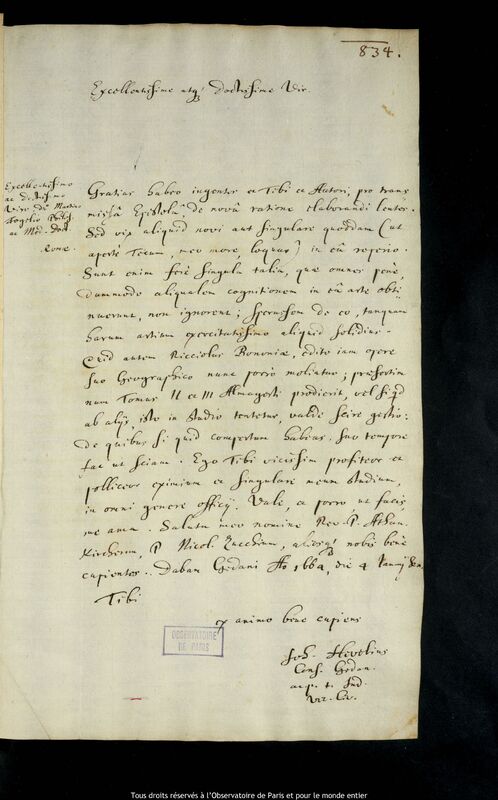 834.
Excellentissime atq; doctissime Vir.
Excellentissimo
ac doctissimo
Viro dn Martino
Fogelio Philos.
ac Med. Doct.
Romæ.
Gratias habeo ingentes et Tibi et Autori, pro trans
missâ Epistola, de novâ ratione elaborandi lentes.
Sed vix aliquid novi aut singulare quoddam (ut
apertè Tecum, meo more loquar) in eâ reperio.
Sunt enim ferè singula talia, quæ omnes penè,
dummodo aliqualem cognitionem in eâ arte obti
nuerunt, non ignorent; sperassem de eo, tanquam
harum artium exercitatissimo aliquid solidius.
Quid autem Ricciolus Bononiæ, edito iam opere
suo Geographico nunc porrò moliatur; præsertim
num Tomus II et III Almagesti prodierit, vel si qd
ab alijs, isto in studio tentetur valdè scire gestio:
de quibus si quid compertum habeas, suo tempore
fac ut sciam. Ego Tibi vicissim profiteor et
polliceor eximium et singulare meum studium,
in omni genere officij. Vale, et porrò ut facis,
me ama. Saluta meo nomine Rev. P. Athan.
Kircherum, P. Nicol. Zucchium, aliosq; nobis benè
cupientes. Dabam Gedani Ao 1664, die 4 Januarij
Tibi
ex animo bene cupiens
Joh. Hevelius
Cons. Gedan.
OBSERVATOIRE
DE PARIS
Tous droits réservés à l'Observatoire de Paris et pour le monde entier